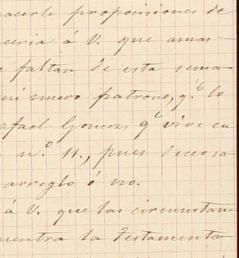 hacerle proposiciones de
ceria á V. que amas
e faltan de esta sema
mi nuevo patrono, q.e lo
afael Gomez, q.e vive en
n.o 11., pues deceosa
arreglo ó no.
á V. que las circunstan
uentra la Testamento